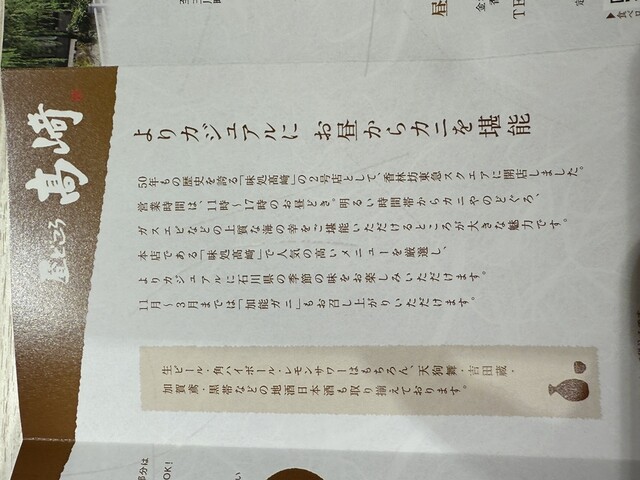 昼ところ
高﨑
よりカジュアルに お昼からカニを堪能
50年もの歴史を誇る「味処高﨑」の2号店として、香林坊東急スクエアに開店しました。
営業時間は11時～17時のお昼どき。明るい時間帯からカニやのどぐろ、
ガスエビなどの上質な海の幸をご堪能いただけるところが大きな魅力です。
本店である「味処高﨑」で人気の高いメニューを厳選し、
よりカジュアルに石川県の季節の味をお楽しみいただけます。
11月～3月までは「加能ガニ」もお召し上がりいただけます。
生ビール・角ハイボール・レモンサワーはもちろん、天狗舞・吉田蔵・
加賀鳶・黒帯などの地酒日本酒も取り揃えております。
部分は
OK!